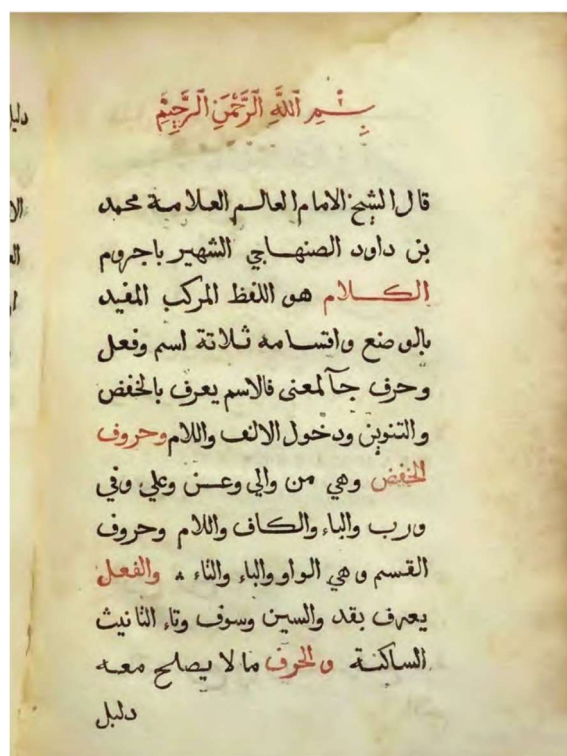 بِسْمِ ٱللَّهِ ٱلرَّحْمَنِ ٱلرَّحِيمِ
قال الشيخ الامام العالم العلامة محمد
بن داود الصنهاجي الشهير باجروم
الكلام هو اللفظ المركب المفيد
بالوضع واقسامه ثلاثة اسم وفعل
وحرف جآ لمعنى فالاسم يعرف بالخفض
والتنوين ودخول الالف واللام وحروف
الخفض وهي من والى وعن وعلى وفي
ورب والباء والكاف واللام وحروف
القسم وهي الواو والباء والتاء والفعل
يعرف بقد والسين وسوف وتاء التانيث
الساكنة والحرف ما لا يصلح معه
دليل